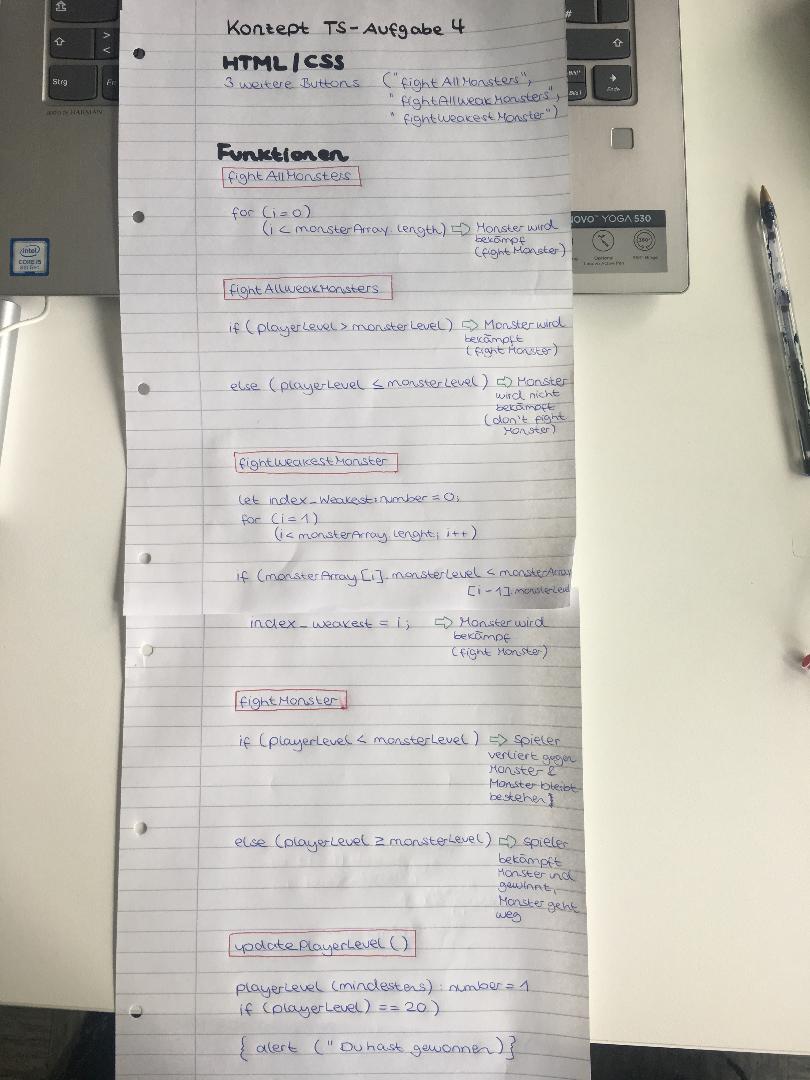 Konzept TS-Aufgabe 4
HTML/CSS
3 weitere Buttons ("fight AllMonsters",
"fightAllweakMonsters",
"fightWeakestMonster")
Funktionen
fightAllMonsters
for (i=0)
(i < monsterArray.length) ⇨ Monster wird
bekämpf
(fight Monster)
fightAllweakMonsters
if (playerLevel > monsterLevel) ⇨ Monster wird
bekämpft
(fight Monster)
else (playerLevel ≤ monsterLevel) ⇨ Monster
wird nicht
bekämpft
(don't fight
Monster)
fightweakestMonster
let index_Weakest:number = 0;
for (i=1)
(i< monsterArray.lenght; i++)
if (monsterArray[i].monsterLevel < monsterArray
[i-1].monsterLevel
index_weakest = i; ⇨ Monster wird
bekämpf
(fight Monster)
fightMonster
if (playerLevel < monsterLevel) ⇨ Spieler
verliert gegen
Monster &
Monster bleibt
bestehen}
else (playerLevel ≥ monsterLevel) ⇨ Spieler
bekämpft
Monster und
gewinnt,
Monster geht
weg
updatePlayerLevel()
playerLevel (mindestens): number = 1
if (playerLevel) == 20)
{ alert ("Du hast gewonnen)}
Strg
by HARMAN
intel
CORE i5
8th Gen
#
Ende
OVO™ YOGA 530
Optional
Lenovo Active Pen
360° Hinge